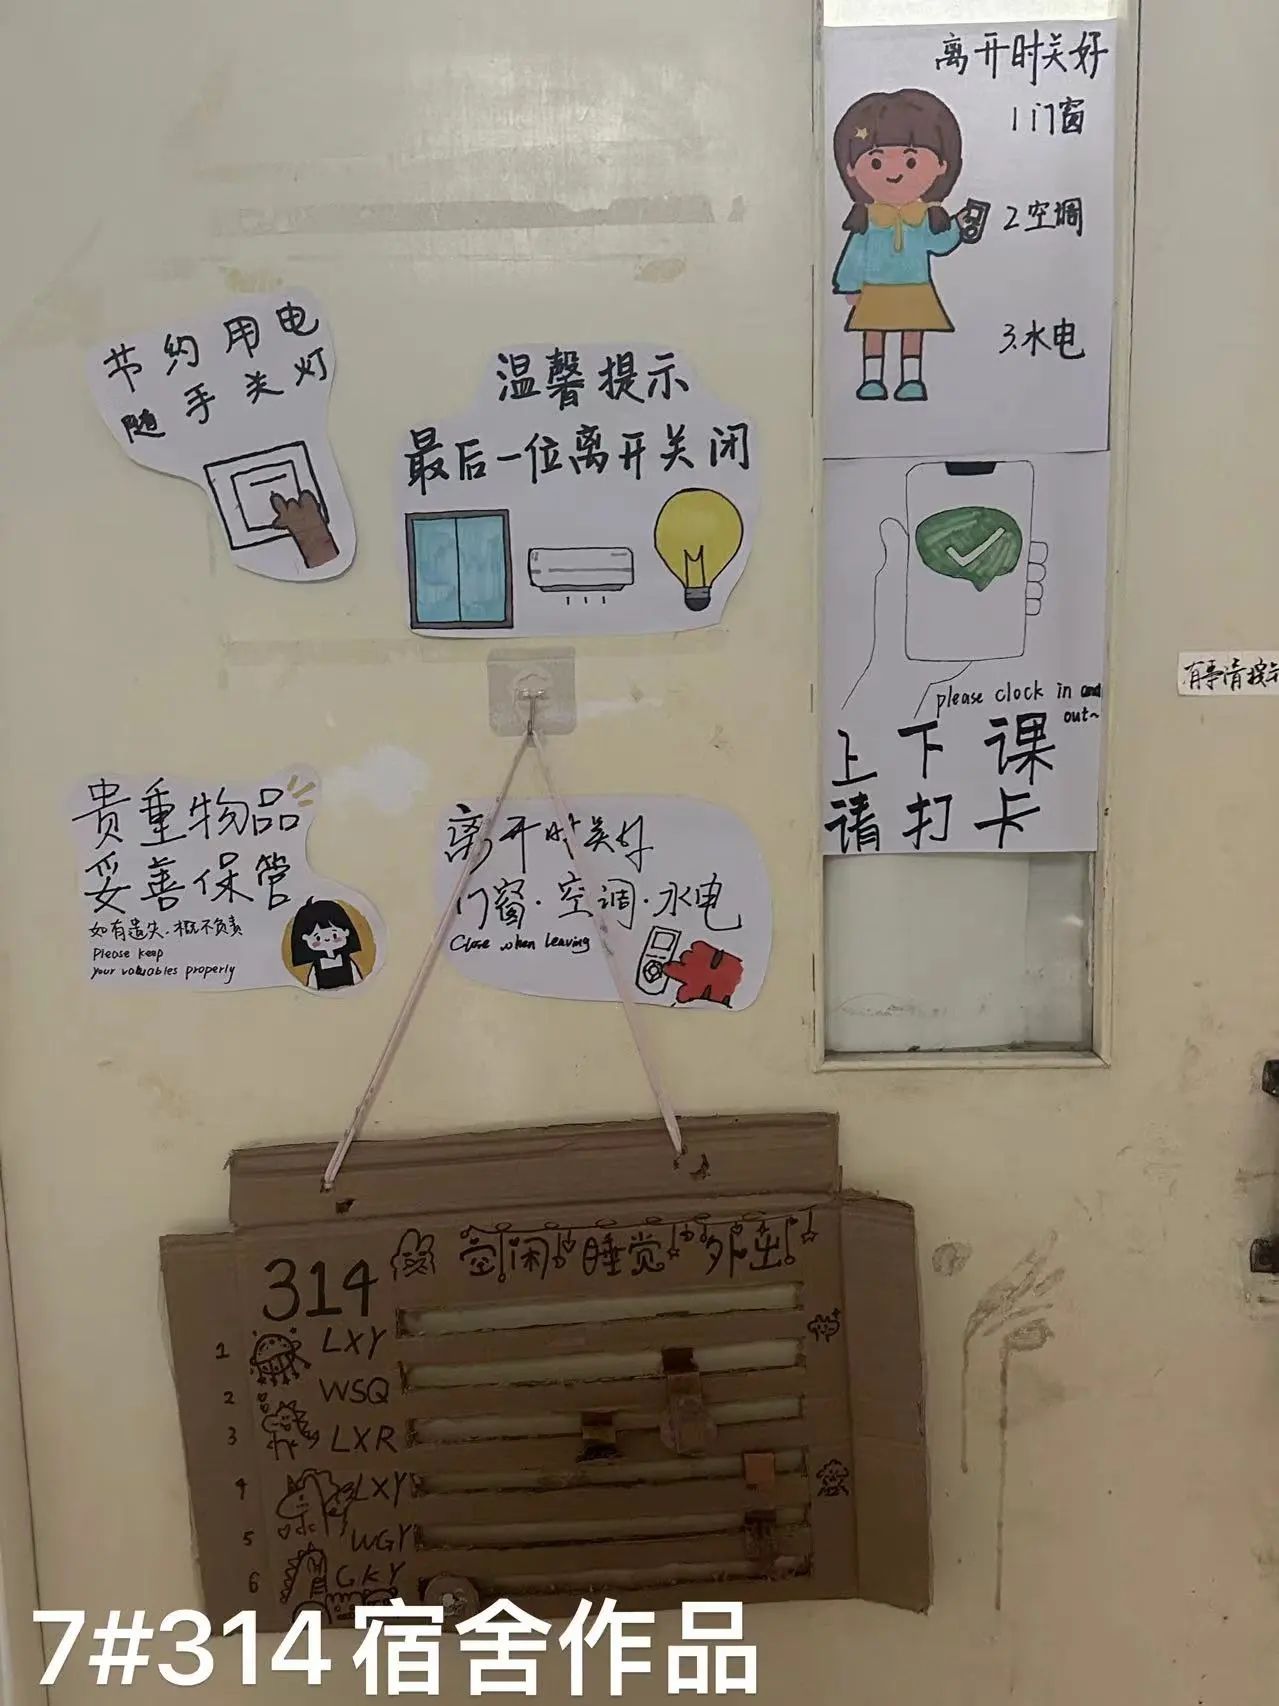 离开时关好
1门窗
2空调
3.水电
节约用电
随手关灯
温馨提示
最后一位离开关闭
please clock in and
out~
上下课
请打卡
有事请按
贵重物品
妥善保管
如有遗失.概不负责
Please keep
your valuables properly
离开时关好
门窗·空调·水电
Close when leaving
314 空闲 睡觉 外出
1 LXY
2 WSQ
3 LXR
4 LXY
5 WGY
6 GKY
7#314宿舍作品